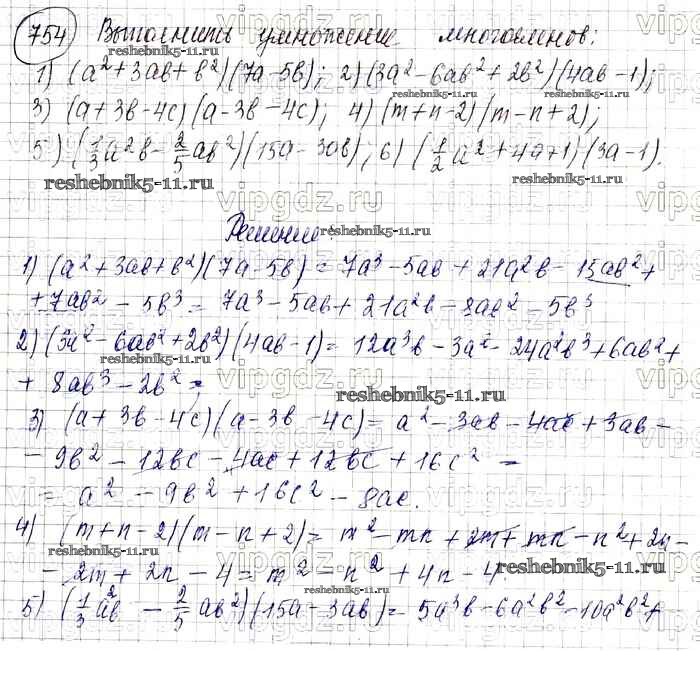 754 Выполнить умножение многочленов:
1) (a²+3ab+b²)(7a-5b); 2) (3a²-6ab²+2b²)(4ab-1);
3) (a+3b-4c)(a-3b-4c); 4) (m+n-2)(m-n+2);
5) (1/3a²b-2/5ab²)(15a-30b); 6) (1/2a²+4a+1)(3a-1).
Решение:
1) (a²+3ab+b²)(7a-5b)=7a³-5ab+21a²b-15ab²+
+7ab²-5b³=7a³-5ab+21a²b-8ab²-5b³
2) (3a²-6ab²+2b²)(4ab-1)=12a³b-3a²-24a²b³+6ab²+
+8ab³-2b²;
3) (a+3b-4c)(a-3b-4c)=a²-3ab-4ac+3ab-
-9b²-12bc-4ac+12bc+16c²=
=a²-9b²+16c²-8ac.
4) (m+n-2)(m-n+2)=m²-mn+2m+mn-n²+2n-
-2m+2n-4=m²-n²+4n-4
5) (1/3a²b-2/5ab²)(15a-3ab)=5a³b-6a²b²-10a²b²+
vipgdz.ru
reshebnik5-11.ru